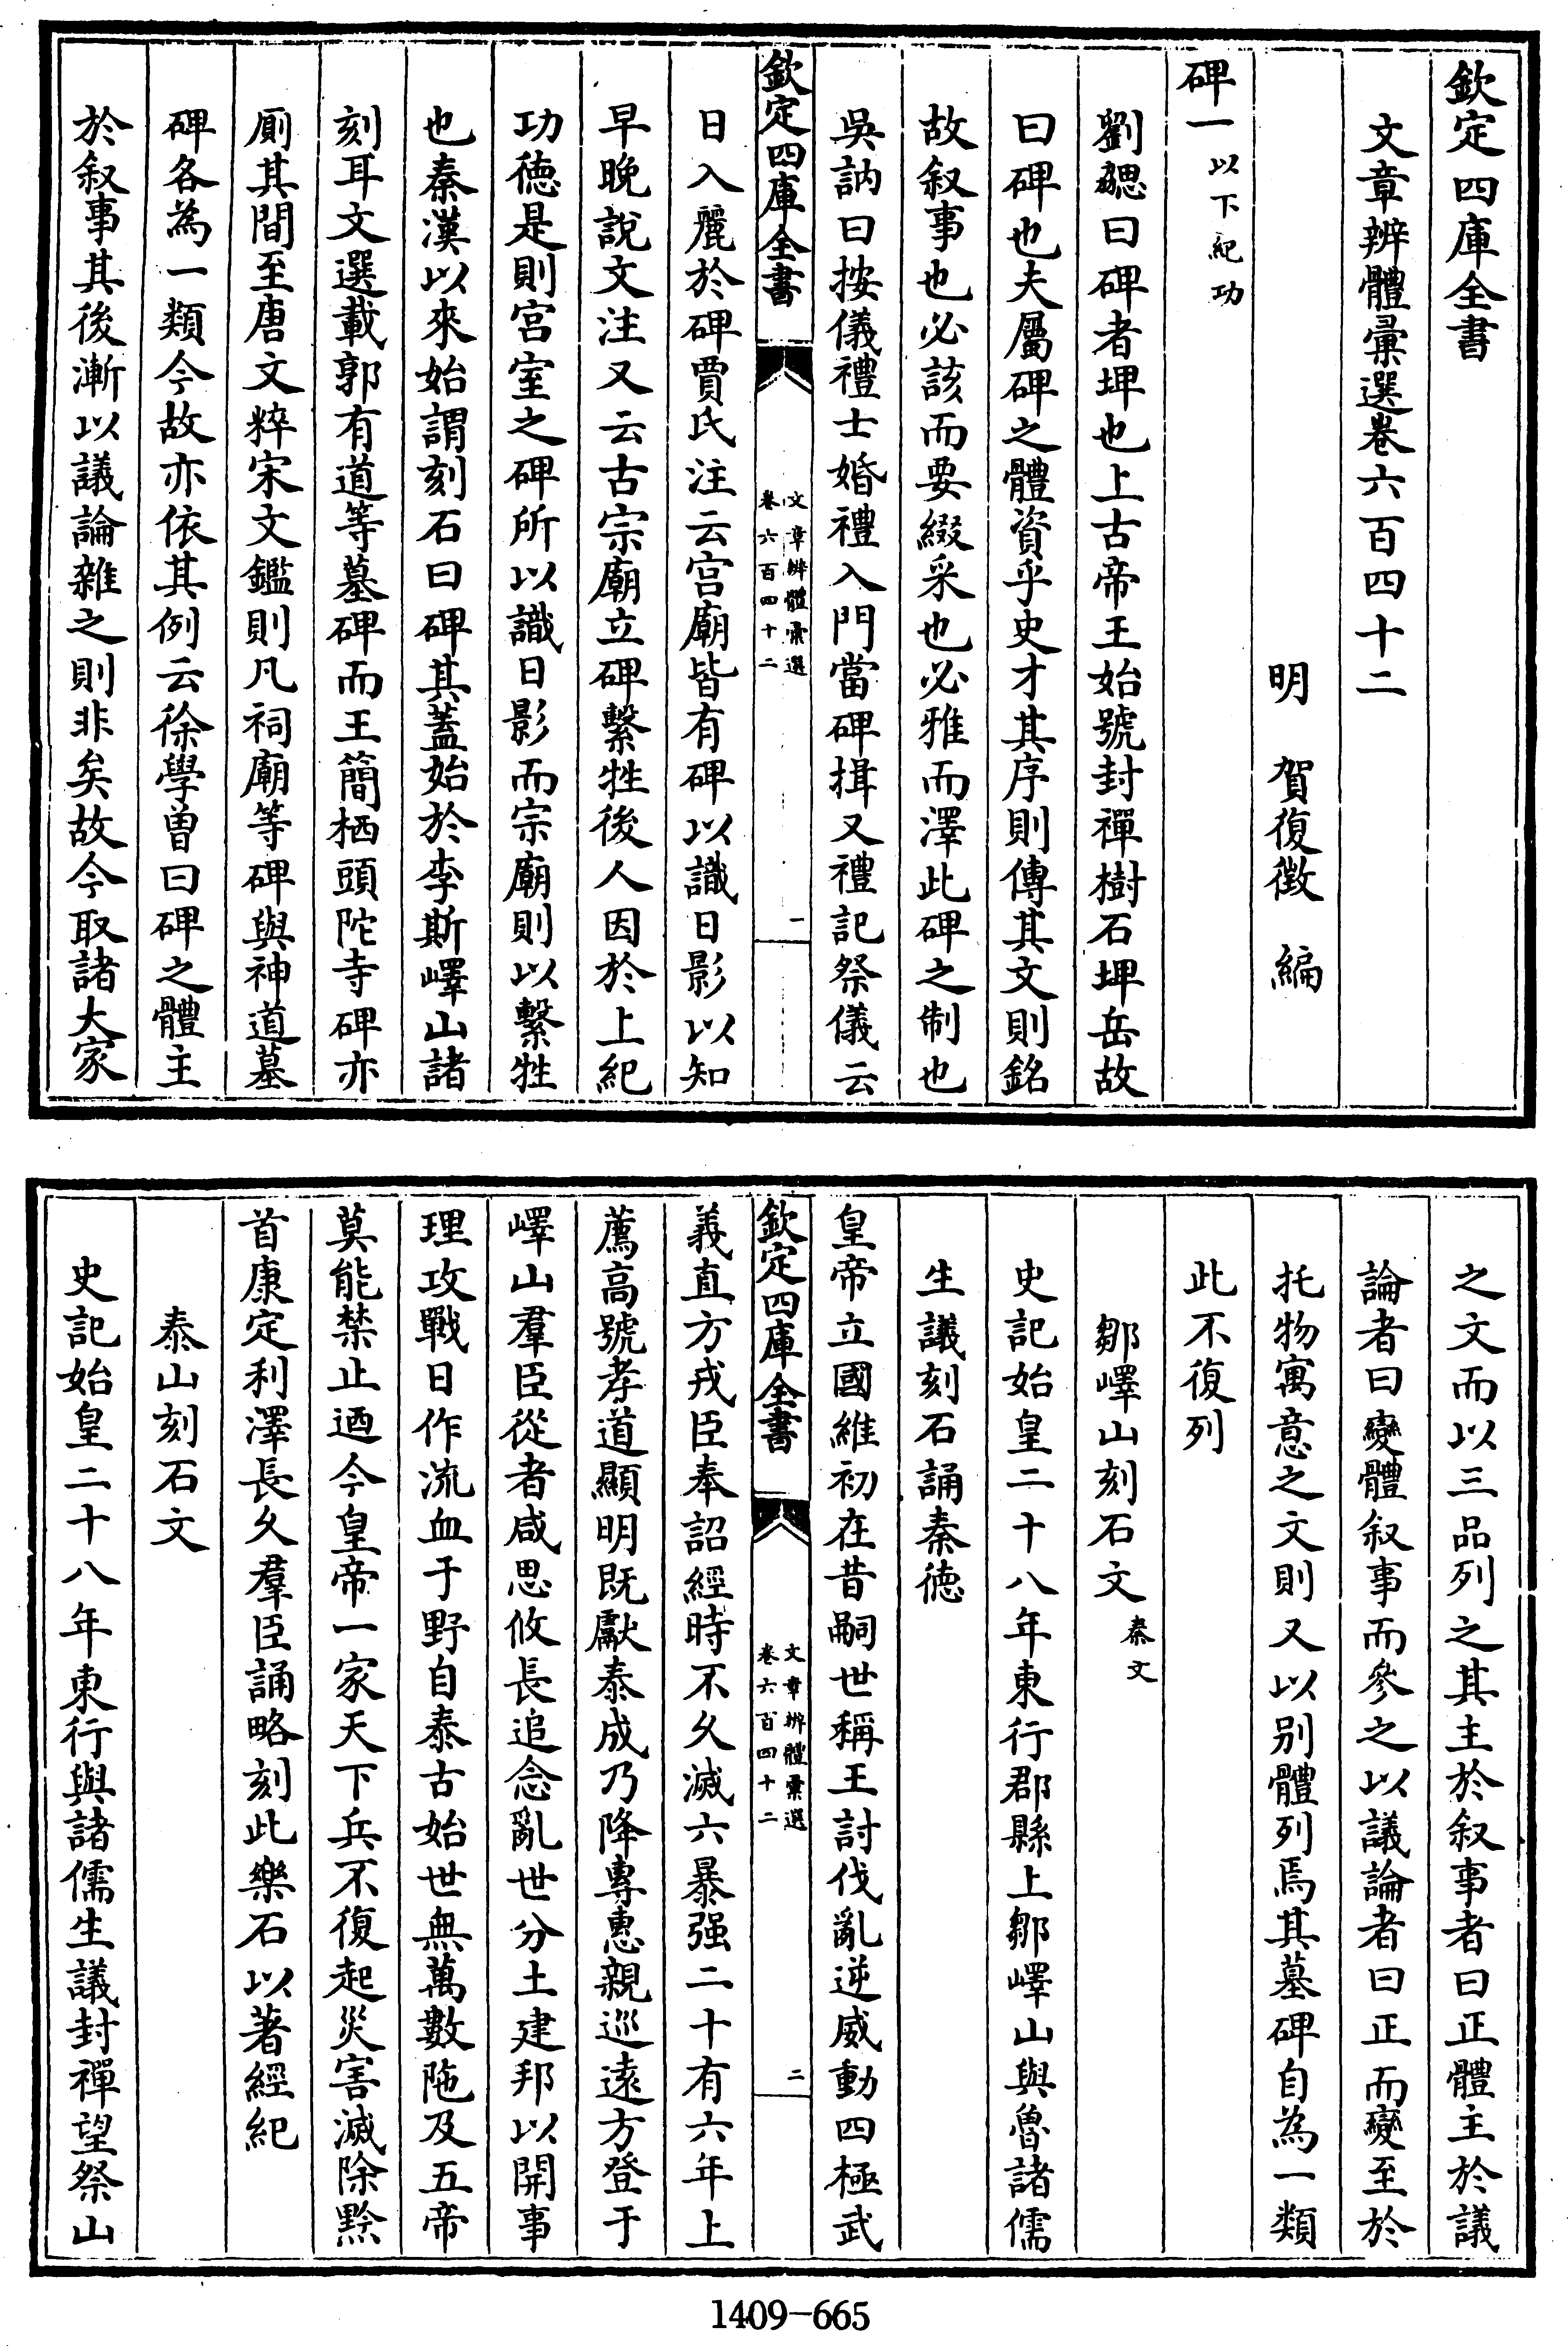 欽定四庫全書
文章辨體彙選卷六百四十二
明 賀復徵 編
碑一以下紀功
劉勰曰碑者埤也上古帝王始號封禪樹石埤岳故
曰碑也夫屬碑之體資乎史才其序則傳其文則銘
故叙事也必該而要綴采也必雅而澤此碑之制也
吳訥曰按儀禮士婚禮入門當碑揖又禮記祭儀云
欽定四庫全書
文章辨體彙選
卷六百四十二
一
日入麗於碑賈氏注云宫廟皆有碑以識日影以知
早晚說文注又云古宗廟立碑繫牲後人因於上紀
功徳是則宫室之碑所以識日影而宗廟則以繫牲
也秦漢以來始謂刻石曰碑其蓋始於李斯嶧山諸
刻耳文選載郭有道等墓碑而王簡栖頭陀寺碑亦
厠其間至唐文粹宋文鑑則凡祠廟等碑與神道墓
碑各為一類今故亦依其例云徐學曽曰碑之體主
於叙事其後漸以議論雜之則非矣故今取諸大家
之文而以三品列之其主於叙事者曰正體主於議
論者曰變體叙事而參之以議論者曰正而變至於
托物寓意之文則又以别體列焉其墓碑自為一類
此不復列
鄒嶧山刻石文秦文
史記始皇二十八年東行郡縣上鄒嶧山與魯諸儒
生議刻石誦秦徳
皇帝立國維初在昔嗣世稱王討伐亂逆威動四極武
欽定四庫全書
文章辨體彙選
卷六百四十二
二
義直方戎臣奉詔經時不久滅六暴强二十有六年上
薦高號孝道顯明既獻泰成乃降專惠親巡逺方登于
嶧山羣臣從者咸思攸長追念亂世分土建邦以開事
理攻戰日作流血于野自泰古始世無萬數陁及五帝
莫能禁止迺今皇帝一家天下兵不復起災害滅除黔
首康定利澤長久羣臣誦略刻此樂石以著經紀
泰山刻石文
史記始皇二十八年東行與諸儒生議封禪望祭山
1409-665